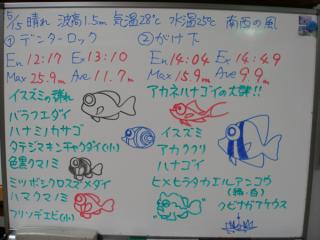 5/15 晴れ 波高1.5m 気温28℃ 水温25℃ 南西の風
①デンターロック
En 12:17 Ex 13:10
Max 25.9m Ave 11.7m
イスズミの群れ
バラフエダイ
ハナミノカサゴ
タテジマキンチャクダイ(小)
色黒クマノミ
ミツボシクロスズメダイ
ハマクマノミ
フリソデエビ(小)
②がけ下
En 14:04 Ex 14:49
Max 15.9m Ave 9.9m
アカネハナゴイの大群!!
イスズミ
アカククリ
ハナゴイ
ヒメヒラタカエルアンコウ
(緑・白)
クビナガアケウス